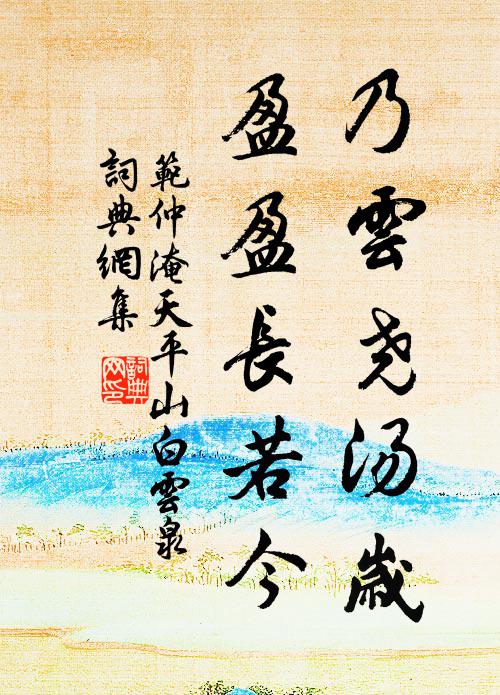 乃雲尧汤歲
盈盈長若今
範仲淹天平山白雲泉
詞典網集
詞典网印